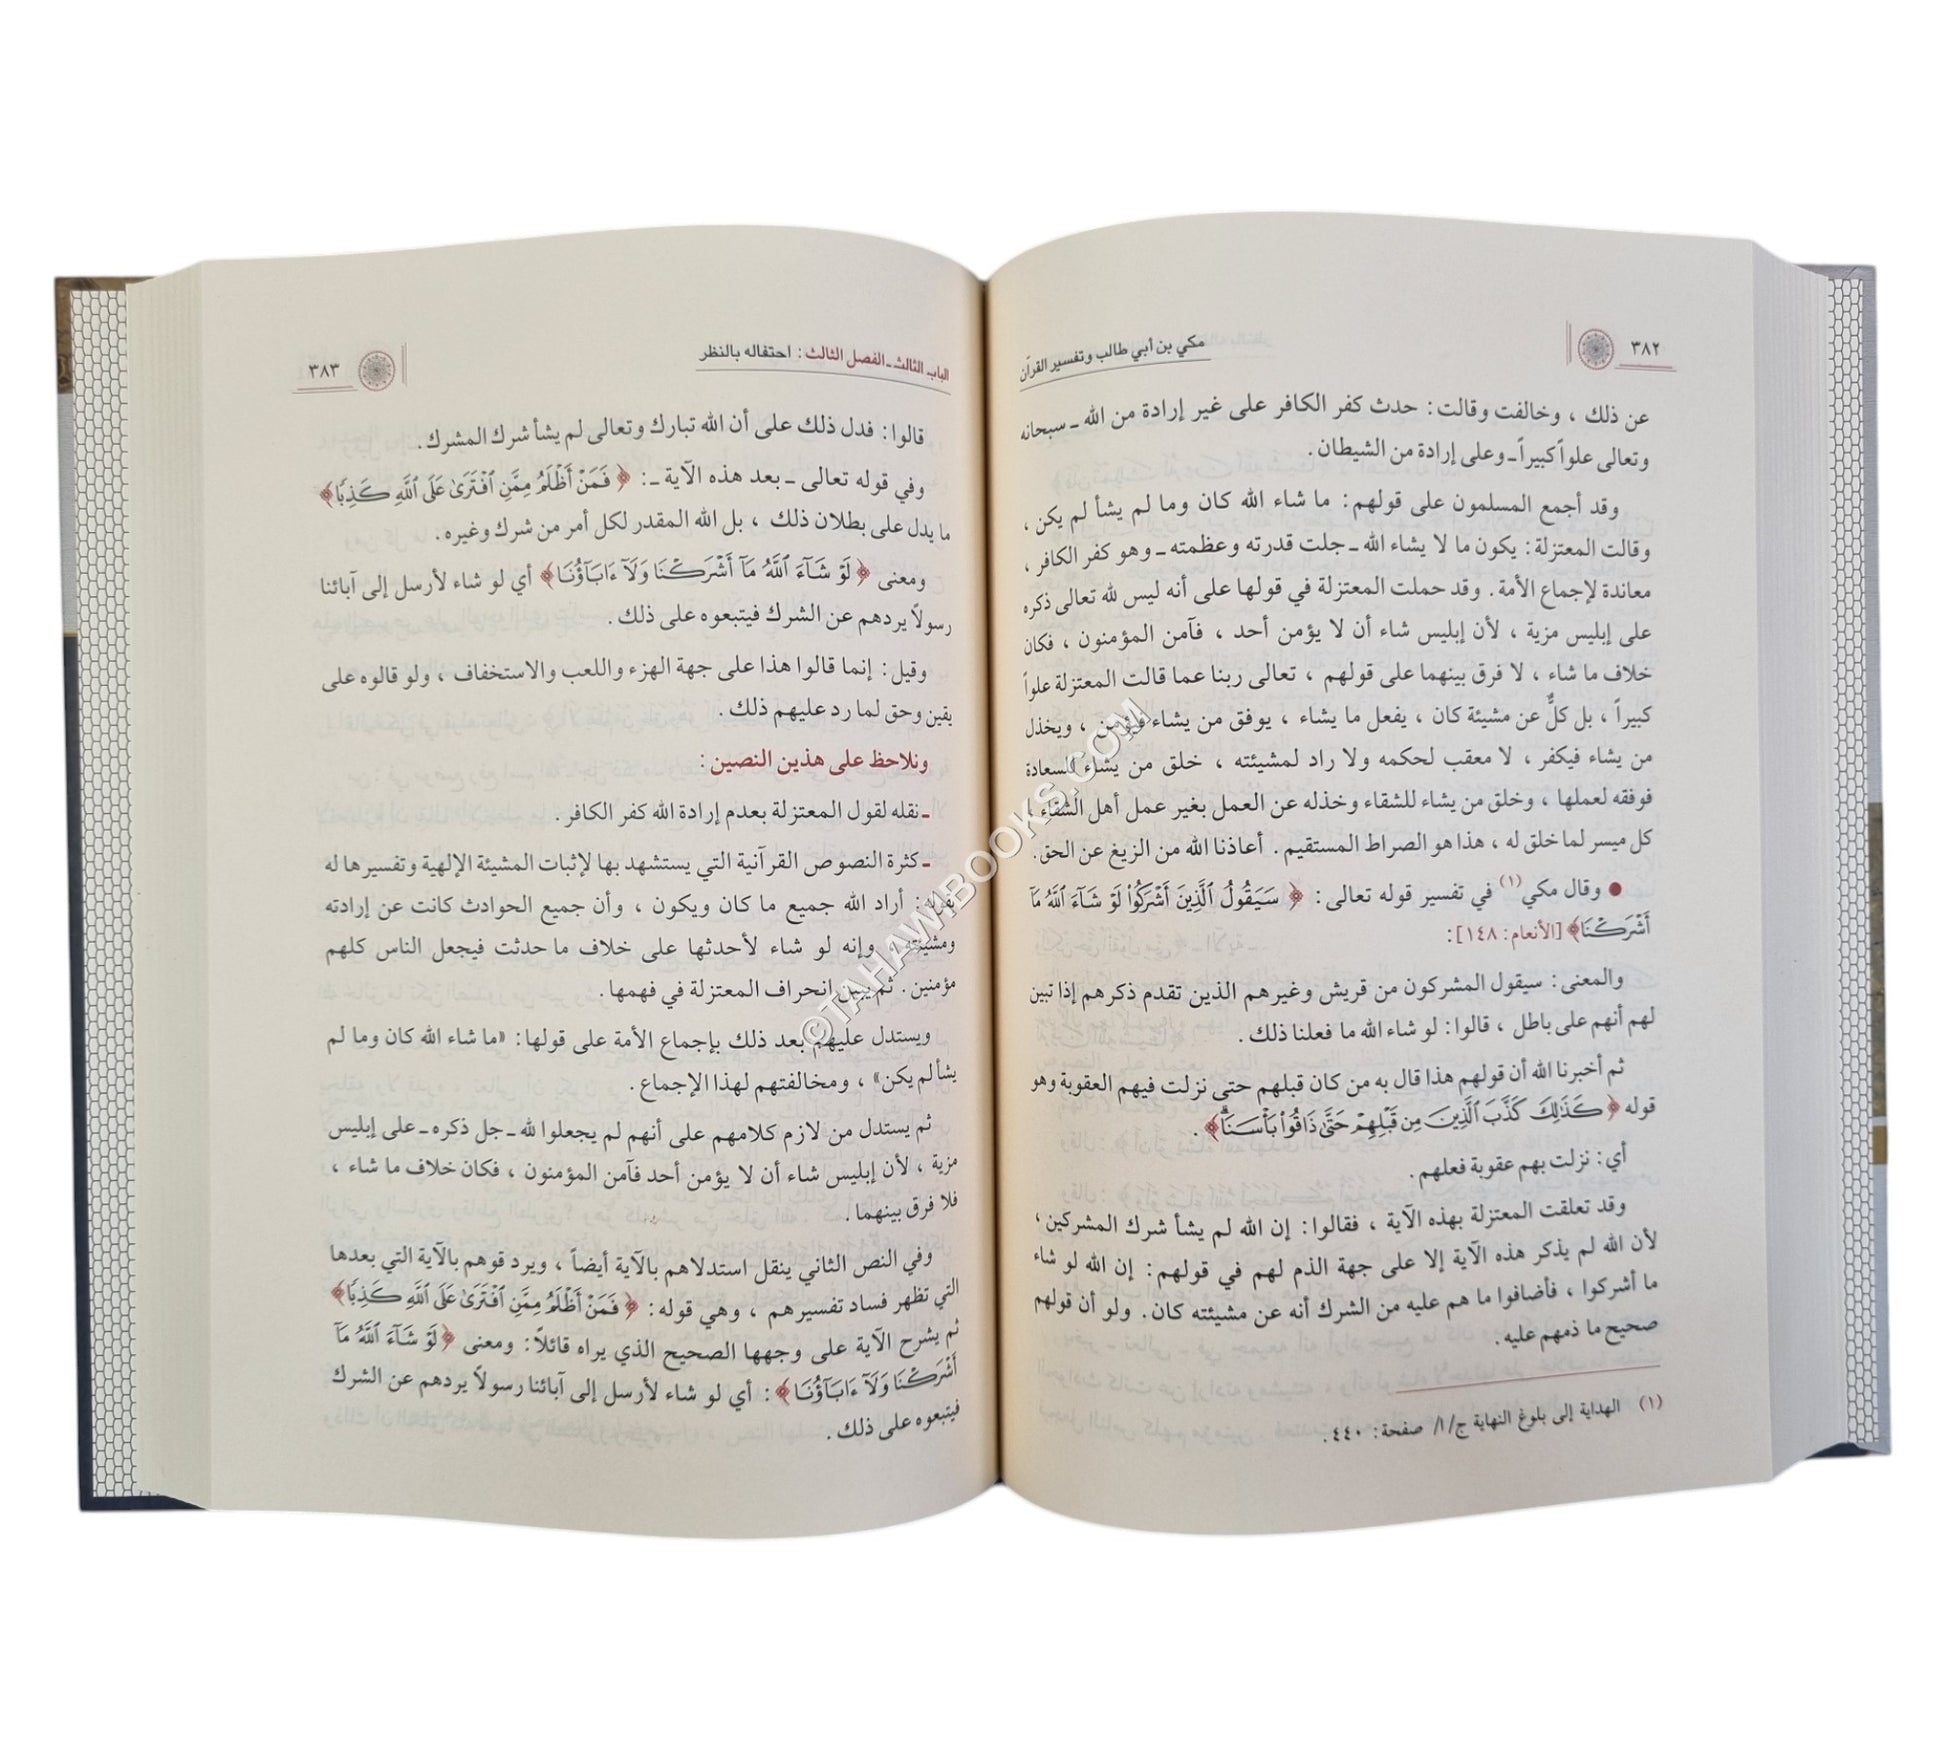 ٣٨٢
مكي بن أبي طالب وتفسير القرآن
عن ذلك ، وخالفت وقالت: حدث كفر الكافر على غير إرادة من الله ـ سبحانه
وتعالى علواً كبيراً ـ وعلى إرادة من الشيطان.
وقد أجمع المسلمون على قولهم: ما شاء الله كان وما لم يشأ لم يكن ،
وقالت المعتزلة: يكون ما لا يشاء الله ـ جلت قدرته وعظمته ـ وهو كفر الكافر ،
معاندة لإجماع الأمة. وقد حملت المعتزلة في قولها على أنه ليس لله تعالى ذكره
على إبليس مزية ، لأن إبليس شاء أن لا يؤمن أحد ، فآمن المؤمنون ، فكان
خلاف ما شاء ، لا فرق بينهما على قولهم ، تعالى ربنا عما قالت المعتزلة علواً
كبيراً ، بل كلٌّ عن مشيئة كان ، يفعل ما يشاء ، يوفق من يشاء فيؤمن ، ويخذل
من يشاء فيكفر ، لا معقب لحكمه ولا راد لمشيئته ، خلق من يشاء للسعادة
فوفقه لعملها ، وخلق من يشاء للشقاء وخذله عن العمل بغير عمل أهل الشقاء ،
كل ميسر لما خلق له ، هذا هو الصراط المستقيم. أعاذنا الله من الزيغ عن الحق.
● وقال مكي(١) في تفسير قوله تعالى: ﴿ سَيَقُولُ ٱلَّذِينَ أَشْرَكُوا۟ لَوْ شَآءَ ٱللَّهُ مَآ
أَشْرَكْنَا﴾ [الأنعام: ١٤٨]:
والمعنى: سيقول المشركون من قريش وغيرهم الذين تقدم ذكرهم إذا تبين
لهم أنهم على باطل ، قالوا: لو شاء الله ما فعلنا ذلك.
ثم أخبرنا الله أن قولهم هذا قال به من كان قبلهم حتى نزلت فيهم العقوبة وهو
قوله ﴿ كَذَٰلِكَ كَذَّبَ ٱلَّذِينَ مِن قَبْلِهِمْ حَتَّىٰ ذَاقُوا۟ بَأْسَنَا ۗ﴾.
أي: نزلت بهم عقوبة فعلهم.
وقد تعلقت المعتزلة بهذه الآية ، فقالوا: إن الله لم يشأ شرك المشركين ،
لأن الله لم يذكر هذه الآية إلا على جهة الذم لهم في قولهم: إن الله لو شاء
ما أشركوا ، فأضافوا ما هم عليه من الشرك أنه عن مشيئته كان. ولو أن قولهم
صحيح ما ذمهم عليه.
(١) الهداية إلى بلوغ النهاية ج/١/ صفحة: ٤٤٠.
الباب الثالث ـ الفصل الثالث: احتفاله بالنظر
٣٨٣
قالوا: فدل ذلك على أن الله تبارك وتعالى لم يشأ شرك المشرك.
وفي قوله تعالى ـ بعد هذه الآية ـ: ﴿ فَمَنْ أَظْلَمُ مِمَّنِ ٱفْتَرَىٰ عَلَى ٱللَّهِ كَذِبًا﴾
ما يدل على بطلان ذلك ، بل الله المقدر لكل أمر من شرك وغيره.
ومعنى ﴿ لَوْ شَآءَ ٱللَّهُ مَآ أَشْرَكْنَا وَلَآ ءَابَآؤُنَا﴾ أي لو شاء لأرسل إلى آبائنا
رسولاً يردهم عن الشرك فيتبعوه على ذلك.
وقيل: إنما قالوا هذا على جهة الهزء واللعب والاستخفاف ، ولو قالوه على
يقين وحق لما رد عليهم ذلك.
ونلاحظ على هذين النصين:
ـ نقله لقول المعتزلة بعدم إرادة الله كفر الكافر.
ـ كثرة النصوص القرآنية التي يستشهد بها لإثبات المشيئة الإلهية وتفسيرها له
بقوله: أراد الله جميع ما كان ويكون ، وأن جميع الحوادث كانت عن إرادته
ومشيئته ، وإنه لو شاء لأحدثها على خلاف ما حدثت فيجعل الناس كلهم
مؤمنين. ثم يبين انحراف المعتزلة في فهمها.
ويستدل عليهم بعد ذلك بإجماع الأمة على قولها: «ما شاء الله كان وما لم
يشأ لم يكن» ، ومخالفتهم لهذا الإجماع.
ثم يستدل من لازم كلامهم على أنهم لم يجعلوا لله ـ جل ذكره ـ على إبليس
مزية ، لأن إبليس شاء أن لا يؤمن أحد فآمن المؤمنون ، فكان خلاف ما شاء ،
فلا فرق بينهما.
وفي النص الثاني ينقل استدلاهم بالآية أيضاً ، ويرد قوهم بالآية التي بعدها
التي تظهر فساد تفسيرهم ، وهي قوله: ﴿ فَمَنْ أَظْلَمُ مِمَّنِ ٱفْتَرَىٰ عَلَى ٱللَّهِ كَذِبًا﴾
ثم يشرح الآية على وجهها الصحيح الذي يراه قائلاً: ومعنى ﴿ لَوْ شَآءَ ٱللَّهُ مَآ
أَشْرَكْنَا وَلَآ ءَابَآؤُنَا ﴾: أي لو شاء لأرسل إلى آبائنا رسولاً يردهم عن الشرك
فيتبعوه على ذلك.
©TAHAWIBOOKS.COM